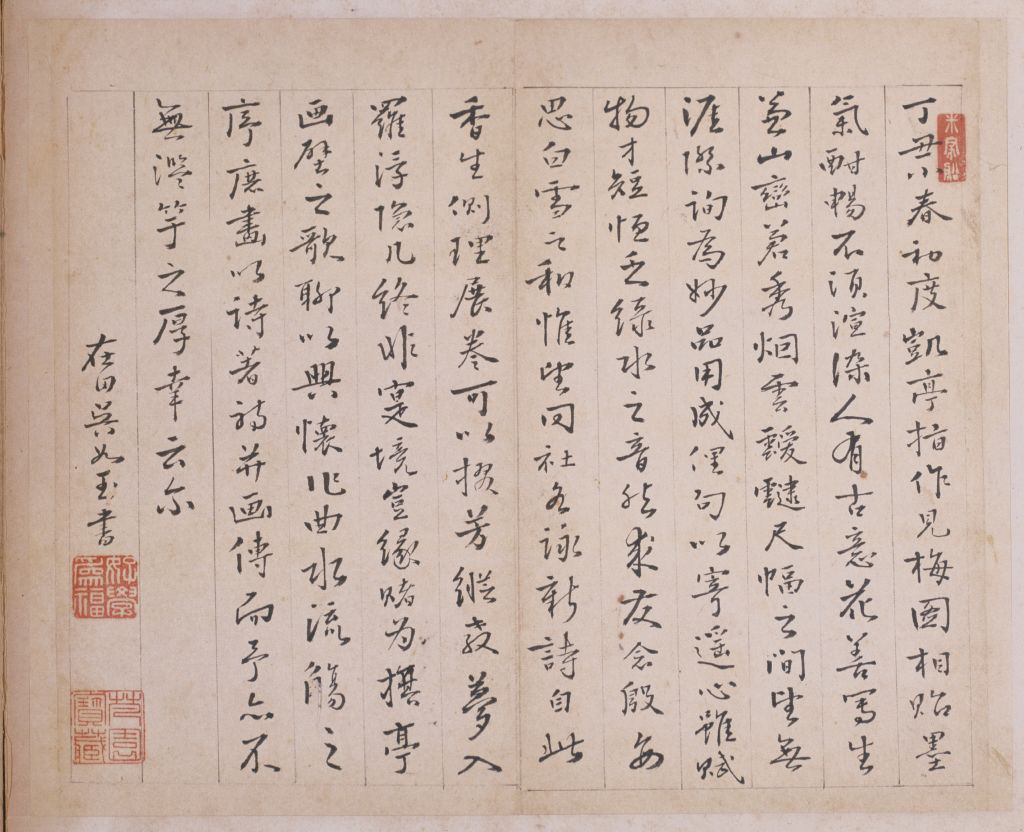 丁丑小春初度凱亭指作見梅圖相貽墨
氣酣暢不須渲染人有古意花善寫生
兼山巒蒼秀烟雲靉靆尺幅之間望無
涯際詢為妙品用成俚句以寄遥心雖賦
物才短恒乏緑水之音然求友念殷每
思白雪之和惟望同社各詠新詩自此
香生側理展卷可以掇芳縱教夢入
羅浮隐几終非寔境豈緣賭为撰亭
画壁之歌聊以興懷作曲水流觴之
序庶畫以詩著詩并画傳而予亦不
無濫竽之厚幸云尔
在田吳如玉書
好學為福
芳園寶藏